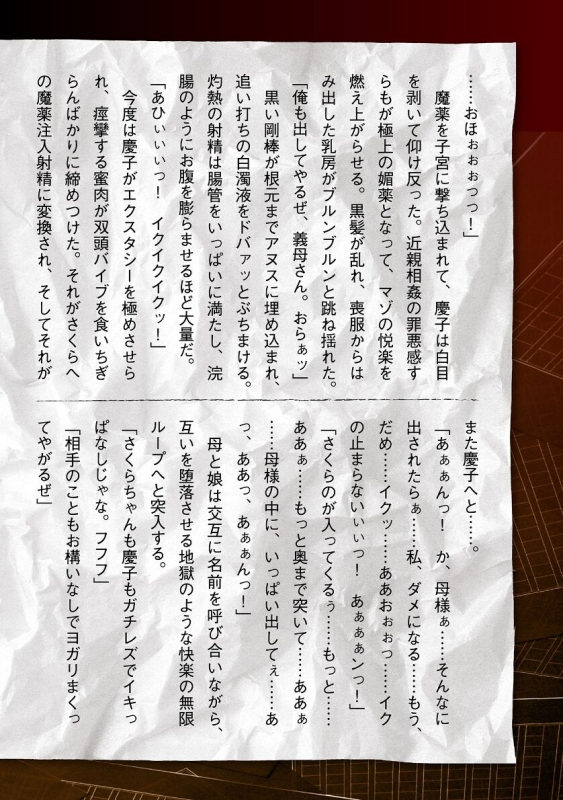 ……おほぉぉぉつっ！」
　魔薬を子宮に撃ち込まれて、慶子は白目
を剥いて仰け反った。近親相姦の罪悪感す
らもが極上の媚薬となって、マゾの悦楽を
燃え上がらせる。黒髪が乱れ、喪服からは
み出した乳房がブルンブルンと跳ね揺れた。
「俺も出してやるぜ、義母さん。おらぁッ」
　黒い剛棒が根元までアヌスに埋め込まれ、
追い打ちの白濁液をドバァッとぶちまける。
灼熱の射精は腸管をいっぱいに満たし、浣
腸のようにお腹を膨らませるほど大量だ。
「あひぃぃぃっ！　イクイクイクッ！」
　今度は慶子がエクスタシーを極めさせら
れ、痙攣する蜜肉が双頭バイブを食いちぎ
らんばかりに締めつけた。それがさくらへ
の魔薬注入射精に変換され、そしてそれが
また慶子へと……。
「あぁぁんっ！　か、母様ぁ……そんなに
出されたらぁ……私、ダメになる……もう、
だめ……イクッ……ああおぉぉっ……イク
の止まらないぃぃっ！　あぁぁぁンっ！」
「さくらのが入ってくるぅ……もっと……
ああぁ……もっと奥まで突いて……ああぁ
……母様の中に、いっぱい出してぇ……あ
っ、ああっ、あぁぁんっ！」
　母と娘は交互に名前を呼び合いながら、
互いを堕落させる地獄のような快楽の無限
ループへと突入する。
「さくらちゃんも慶子もガチレズでイキっ
ぱなしじゃな。フフフ」
「相手のこともお構いなしでヨガりまくっ
てやがるぜ」